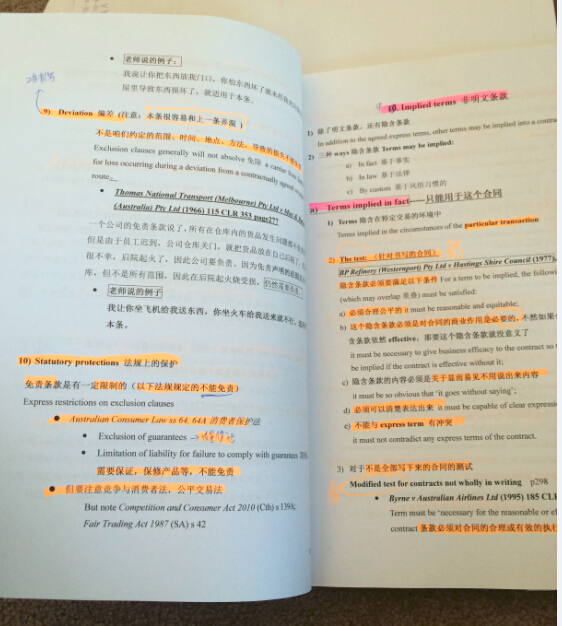 老师说的例子:
我说让你把东西放我门口,你怕东西坏了就
屋里导致东西损坏了,就适用于本条。
9) Deviation 偏差 (注意:本条很容易和上一条弄混)
不是咱们约定的范围、时间、地点、方法,导致的损失不能免责
Exclusion clauses generally will not absolve 免除 a carrier from
for loss occurring during a deviation from a contractually agreed
route.
Thomas National Transport (Melbourne) Pty Ltd v May &
(Australia) Pty Ltd (1966) 115 CLR 353 page277
一个公司的免责条款说了,所有在仓库内的货品发生问题都
但是由于员工迟到,公司仓库关门,就把货品放在自己后院了,
很不幸,后院起火了,因此公司要负责。因为免责声明的范围
库,但不是所有范围,因此在后院起火烧受损,仍然需要负责
老师说的例子
我让你坐飞机给我送东西,你坐火车给我送来就不行,
本条。
10) Statutory protections 法规上的保护
免责条款是有一定限制的(以下法规规定的不能免责)
Express restrictions on exclusion clauses
Australian Consumer Law ss 64, 64A 消费者保护法
Exclusion of guarantees
Limitation of liability for failure to comply with guarantees
需要保证,保修产品等,不能免责
但要注意竞争与消费者法,公平交易法
But note Competition and Consumer Act 2010 (Cth) s 139A;
Fair Trading Act 1987 (SA) s 42
Implied terms 非明文条款
1) 除了明文条款,还有隐含条款
In addition to the agreed express terms, other terms may be implied into a contra
2) 三种 ways 隐含条款 Terms may be implied:
a) In fact 基于事实
b) In law 基于法律
c) By custom 基于风俗习惯的
a) Terms implied in fact-----只能用于这个合同
1) Terms 隐含在特定交易的环境中
Terms implied in the circumstances of the particular transaction
2) The test: (针对书写的合同)
BP Refinery (Westernport) Pty Ltd v Hastings Shire Council (1977),
隐含条款必须要满足以下条件 For a term to be implied, the following
(which may overlap 重叠) must be satisfied:
a) 必须合理公平的 it must be reasonable and equitable;
b) 这个隐含条款必须是对合同的商业作用是必要的,不然如果
含条款依然 effective,那要这个隐含条款就没意义了
it must be necessary to give business efficacy to the contract so
be implied if the contract is effective without it;
c) 隐含条款的内容必须是关于显而易见不用说出来内容
it must be so obvious that 'it goes without saying';
d) 必须可以清楚表达出来 it must be capable of clear expressio
e) 不能与 express term 有冲突
it must not contradict any express terms of the contract.
3) 对于不是全部写下来的合同的测试
Modified test for contracts not wholly in writing p298
Byrne v Australian Airlines Ltd (1995) 185 CLR
Term must be 'necessary for the reasonable or ef
contract 条款必须对合同的合理或有效的执行